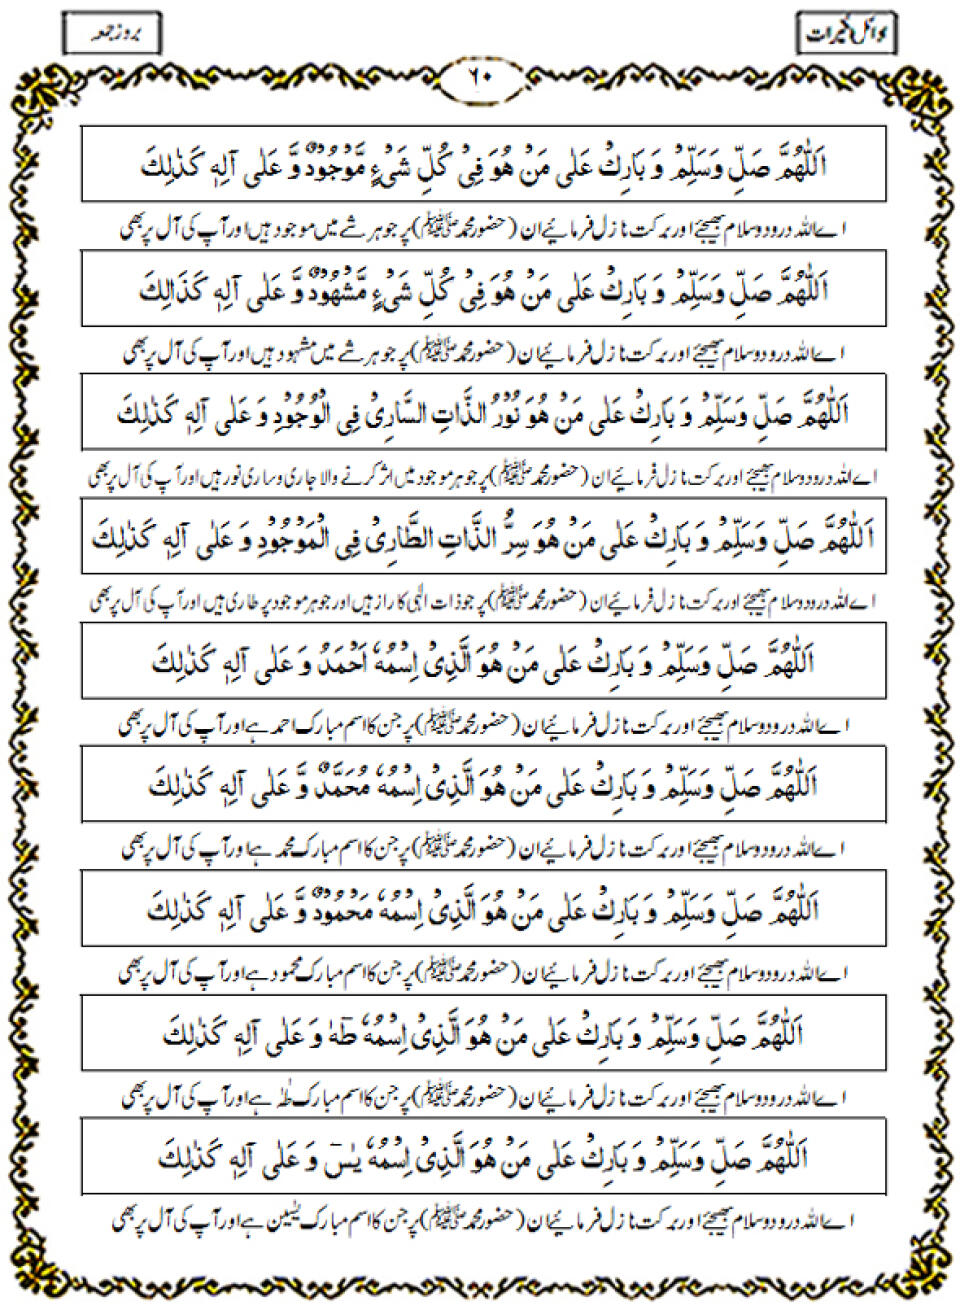 بروز جمعہ
۶۰
اَللّٰهُمَّ صَلِّ وَسَلِّمْ وَ بَارِكْ عَلٰی مَنْ هُوَ فِیْ كُلِّ شَیْءٍ مَّوْجُوْدٌ وَّ عَلٰی آلِهٖ كَذٰلِكَ
اے اللہ درود و سلام بھیجئے اور برکت نازل فرمائیے ان (حضور محمد ﷺ) پر جو ہر شے میں موجود ہیں اور آپ کی آل پر بھی
اَللّٰهُمَّ صَلِّ وَسَلِّمْ وَ بَارِكْ عَلٰی مَنْ هُوَ فِیْ كُلِّ شَیْءٍ مَّشْهُوْدٌ وَّ عَلٰی آلِهٖ كَذَالِكَ
اے اللہ درود و سلام بھیجئے اور برکت نازل فرمائیے ان (حضور محمد ﷺ) پر جو ہر شے میں مشہود ہیں اور آپ کی آل پر بھی
اَللّٰهُمَّ صَلِّ وَسَلِّمْ وَ بَارِكْ عَلٰی مَنْ هُوَ نُوْرُ الذَّاتِ السَّارِیْ فِی الْوُجُوْدِ وَ عَلٰی آلِهٖ كَذٰلِكَ
اے اللہ درود و سلام بھیجئے اور برکت نازل فرمائیے ان (حضور محمد ﷺ) پر جو ہر موجود میں اثر کرنے والا جاری و ساری نور ہیں اور آپ کی آل پر بھی
اَللّٰهُمَّ صَلِّ وَسَلِّمْ وَ بَارِكْ عَلٰی مَنْ هُوَ سِرُّ الذَّاتِ الطَّارِیْ فِی الْمَوْجُوْدِ وَ عَلٰی آلِهٖ كَذٰلِكَ
اے اللہ درود و سلام بھیجئے اور برکت نازل فرمائیے ان (حضور محمد ﷺ) پر جو ذات الٰہی کا راز ہیں اور جو ہر موجود پر طاری ہیں اور آپ کی آل پر بھی
اَللّٰهُمَّ صَلِّ وَسَلِّمْ وَ بَارِكْ عَلٰی مَنْ هُوَ الَّذِیْ اِسْمُهٗ اَحْمَدُ وَ عَلٰی آلِهٖ كَذٰلِكَ
اے اللہ درود و سلام بھیجئے اور برکت نازل فرمائیے ان (حضور محمد ﷺ) پر جن کا اسم مبارک احمد ہے اور آپ کی آل پر بھی
اَللّٰهُمَّ صَلِّ وَسَلِّمْ وَ بَارِكْ عَلٰی مَنْ هُوَ الَّذِیْ اِسْمُهٗ مُحَمَّدٌ وَّ عَلٰی آلِهٖ كَذٰلِكَ
اے اللہ درود و سلام بھیجئے اور برکت نازل فرمائیے ان (حضور محمد ﷺ) پر جن کا اسم مبارک محمد ہے اور آپ کی آل پر بھی
اَللّٰهُمَّ صَلِّ وَسَلِّمْ وَ بَارِكْ عَلٰی مَنْ هُوَ الَّذِیْ اِسْمُهٗ مَحْمُوْدٌ وَّ عَلٰی آلِهٖ كَذٰلِكَ
اے اللہ درود و سلام بھیجئے اور برکت نازل فرمائیے ان (حضور محمد ﷺ) پر جن کا اسم مبارک محمود ہے اور آپ کی آل پر بھی
اَللّٰهُمَّ صَلِّ وَسَلِّمْ وَ بَارِكْ عَلٰی مَنْ هُوَ الَّذِیْ اِسْمُهٗ طٰهٰ وَ عَلٰی آلِهٖ كَذٰلِكَ
اے اللہ درود و سلام بھیجئے اور برکت نازل فرمائیے ان (حضور محمد ﷺ) پر جن کا اسم مبارک طٰہٰ ہے اور آپ کی آل پر بھی
اَللّٰهُمَّ صَلِّ وَسَلِّمْ وَ بَارِكْ عَلٰی مَنْ هُوَ الَّذِیْ اِسْمُهٗ یٰسٓ وَ عَلٰی آلِهٖ كَذٰلِكَ
اے اللہ درود و سلام بھیجئے اور برکت نازل فرمائیے ان (حضور محمد ﷺ) پر جن کا اسم مبارک یٰسین ہے اور آپ کی آل پر بھی